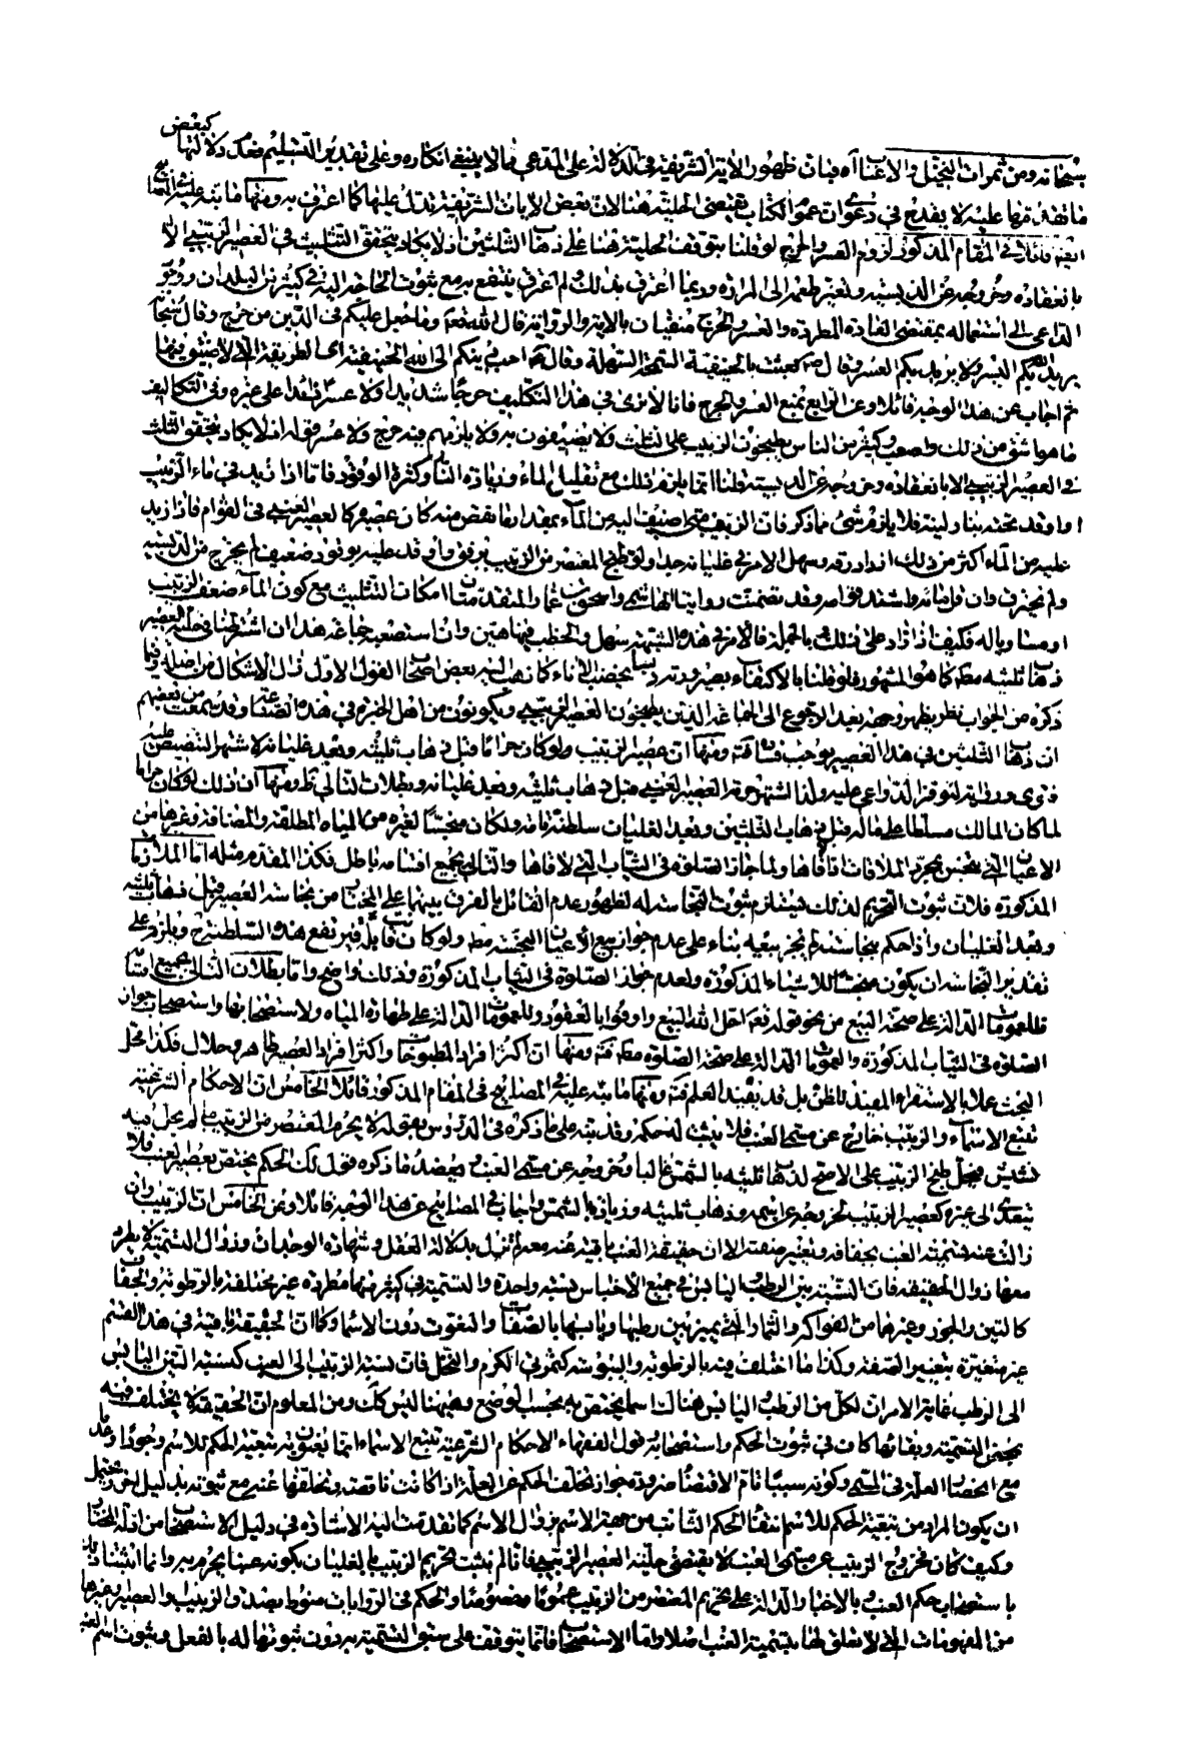 كبعض
سبحانه ومن ثمرات النخيل والاعناب آه فبان ظهور الآية الشريفة في الدلالة على المدعى مما لا ينبغي انكاره وعلى تقدير التسليم فعدم دلالتها
ما تقدم عليه لا يقدح في دعوى ان عموم الكتاب يقتضي الحلية هنا لان بعض الآيات الشريفة تدل عليها كما اعترف به ومنها ما نبه عليه في المصابيح
ايضا قائلا في المقام المذكور لزوم العسر والحرج لو قلنا بتوقف الحلية هنا على ذهاب الثلثين اذ لا يكاد يتحقق التثليث في العصير الزبيبي الا
بانعقاده وخروجه عن الدبسية وتغير طعمه الى المرارة وربما احترق بذلك ولم ينتفع به مع ثبوت الحاجة اليه في كثير من البلدان
الداعي الى استعماله بمقتضى العادة المطردة والعسر والحرج منفيان بالآية والرواية قال الله تعالى وما جعل عليكم في الدين من حرج وقال سبحانه
يريد الله بكم اليسر ولا يريد بكم العسر وقال ص بعثت بالحنيفية السمحة السهلة وقال احب دينكم الى الله الحنيفية اى الطريقة التي لا ضيق فيها
ثم اجاب عن هذا الوجه قائلا وعن الرابع بمنع العسر والحرج فانا لا نرى في هذا التكليف حرجا شديدا ولا عسرا زائدا على غيره وفي التكاليف
ما هو اشق من ذلك واصعب وكثير من الناس يطبخون الزبيب على الثلث ولا يضيقون به ولا يلزمهم فيه حرج ولا عسر قوله اذ لا يكاد يتحقق الثلث
في العصير الزبيبي الا بانعقاده وخروجه عن الدبسية قلنا انما يلزم ذلك مع تقليل الماء وزيادة النار وكثرة الوقود فاما اذا زيد في ماء الزبيب
او اوقد تحته بنار لينة فلا يلزم شيء مما ذكر فان الزبيب متى اضيف اليه من الماء بمقدار ما نقص منه كان عصيره كالعصير العنبي في القوام فاذا زيد
عليه من الماء اكثر من ذلك ازداد رقة وسهل الامر في غليانه جدا ولو طبخ المعتصر من الزبيب برفق واوقد عليه بوقود ضعيف لم يخرج من الدبسية
ولم يحترق وان قل مائه واشتد قوامه وقد تضمنت روايتا الهاشمي واسحق بن عمار المتقدمتان امكان التثليث مع كون الماء ضعف الزبيب
او مساويا له فكيف اذا زاد على ذلك وبالجملة فالامر في هذه الشبهة سهل والخطب فيها هين وان استصعبه جماعة هذا ان اشترطنا في حلية العصير
ذهاب ثلثيه مطلقا كما هو المشهور فلو قلنا بالاكتفاء بصيرورته دبسا يخضب الاناء كما ذهب اليه بعض اصحاب القول الاول زال الاشكال من اصله وفيما
ذكره من الجواب نظر يظهر وجهه بعد الرجوع الى الجماعة الذين يطبخون العصير الزبيبي ويكونون من اهل الخبرة في هذه الصناعة وقد سمعت من بعضهم
ان ذهاب الثلثين في هذا العصير يوجب فسادا فتأمل ومنها ان عصير الزبيب لو كان حراما قبل ذهاب ثلثيه وبعد غليانه لاشتهر التنصيص عليه
فتوى ورواية لتوفر الدواعي عليه ولذا اشتهر حرمة العصير العنبي قبل ذهاب ثلثيه وبعد غليانه وبطلان التالي ظاهر ومنها ان ذلك لو كان حراما
لما كان المالك مسلطا على ماله قبل ذهاب الثلثين وبعد الغليان سلطنة تامة ولكان منجسا لغيره من المياه المطلقة والمضافة وغيرها من
الاعيان التي تنجس بمجرد الملاقات اذا لاقاها ولما جاز الصلوة في الثياب التي لاقاها والتالي بجميع اقسامه باطل فكذا المقدم مثله اما الملازمة
المذكورة فلان ثبوت التحريم لذلك يستلزم ثبوت النجاسة له لظهور عدم القائل بالفرق بينهما على المختار من نجاسة العصير قبل ذهاب ثلثيه
وبعد الغليان واذا حكم بنجاسته لم يجز بيعه بناء على عدم جواز بيع الاعيان النجسة مطلقا ولو كان قابلا للتطهير فترتفع هذه السلطنة ويلزم على
تقدير النجاسة ان يكون منجسا للاشياء المذكورة ولعدم جواز الصلوة في الثياب المذكورة وذلك واضح واما بطلان التالي بجميع اقسامه
فللعمومات الدالة على صحة البيع من نحو قوله تعالى احل الله البيع واوفوا بالعقود وللعمومات الدالة على طهارة المياه ولاستصحابها واستصحاب جواز
الصلوة في الثياب المذكورة والعمومات الدالة على صحة الصلوة مطلقا فتأمل ومنها ان اكثر افراد المطبوخات واكثر افراد العصير طاهر وحلال فكذا محل
البحث عملا بالاستقراء المفيد للظن بل قد يفيد العلم فتأمل ومنها ما نبه عليه في المصابيح في المقام المذكور قائلا الخامس ان الاحكام الشرعية
تتبع الاسماء والزبيب خارج عن مسمى العنب فلا يثبت له حكمه وقد نبه على ما ذكره في الدروس بقوله لا يحرم المعتصر من الزبيب ما لم يحل فيه
نشيش فيحل طبخ الزبيب على الاصح لذهاب ثلثيه بالشمس غالبا وخروجه عن مسمى العنب ويعضد ما ذكره قول ان الحكم يختص بعصير العنب فلا
يتعدى الى غيره كعصير الزبيب لخروجه عن اسمه وذهاب ثلثيه وزيادة بالشمس واجاب في المصابيح عن هذا الوجه قائلا وعن الخامس ان الزبيب وان
زالت عنه تسمية العنب بجفافه وتغير صفته الا ان حقيقة العنب باقية عنه معه لم تزل بدلالة العقل وشهادة الوجدان وزوال التسمية لا يطرد
معها زوال الحقيقة فان النسبة بين الرطب واليابس في جميع الاجناس نسبة واحدة والتسمية في كثير منها مطردة غير مختلفة بالرطوبة والجفاف
كالتين والجوز وغيرهما من الفواكه والثمار التي يميز بين رطبها ويابسها بالصفات والنعوت دون الاسماء وكما ان الحقيقة باقية في هذا القسم
غير متغيرة بتغير الصفة وكذا ما اختلف فيه بالرطوبة واليبوسة كثمرتي الكرم والنخل فان نسبة الزبيب الى العنب كنسبة التين اليابس
الى الرطب غاية الامر ان لكل من الرطب اليابس هناك اسما يختص به بحسب الوضع وهيهنا ليس كك ومن المعلوم ان الحقيقة لا يختلف فيه
بمحض التسمية وبقائها كاف في ثبوت الحكم واستصحابه وقول الفقهاء الاحكام الشرعية تتبع الاسماء انما يعنون به تبعية الحكم للاسم وجودا وعدما
مع انحصار العلة في المسمى وكونه سببا تام الاقتضاء ضرورة جواز تخلف الحكم عن العلة اذا كانت ناقصة وتخلفها عنه مع ثبوته بدليل اخر ويحتمل
ان يكون المراد من تبعية الحكم للاسم انتفاء الحكم الثابت من جهة الاسم بزوال الاسم كما تقدمت اليه الاشارة في دليل الاستصحاب من ادلة المختار
وكيف كان فخروج الزبيب عن مسمى العنب لا يقتضي حلية العصير الزبيبي فانا لم نثبت تحريم الزبيب بالغليان بكونه عنبا يحرم به وانما اثبتناه
باستصحاب حكم العنب وبالاخبار الدالة على تحريم المعتصر من الزبيب عموما وخصوصا والحكم في الروايات منوط بصدق الزبيب والعصير وغيرها
من المفهومات التي لا تعلق لها بتسمية العنب اصلا واما الاستصحاب فانما يتوقف على سبق التسمية به دون ثبوتها له بالفعل وثبوت اسم العنب